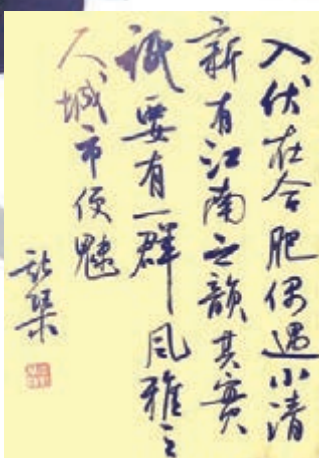 入伏在合肥偶遇小清
新有江南之韻其實
祗要有一群风雅之
人城市便魅